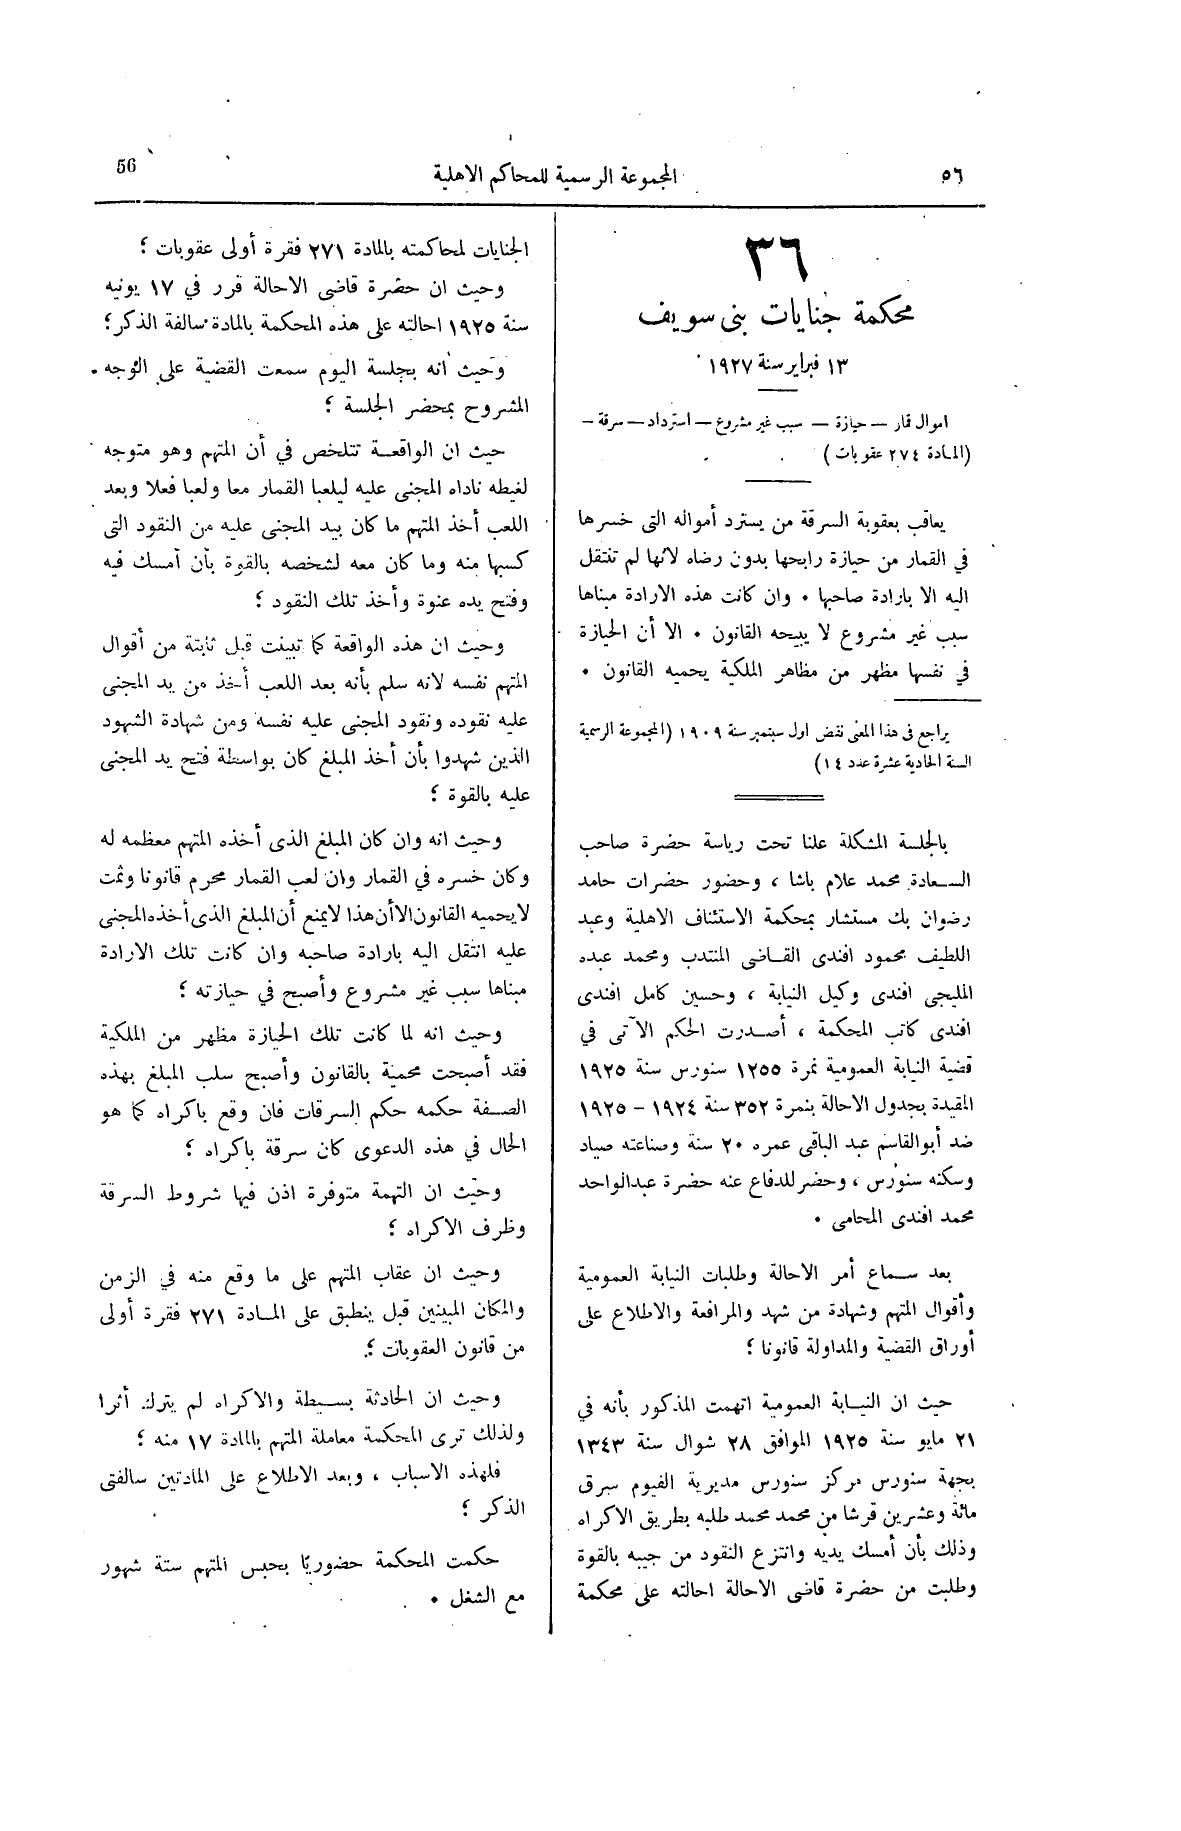 ٥٦
المجموعة الرسمية للمحاكم الاهلية
56
٣٦
محكمة جنايات بنى سويف
١٣ فبراير سنة ١٩٢٧
اموال قمار — حيازة — سبب غير مشروع — استرداد — سرقة —
(المادة ٢٧٤ عقوبات)
يعاقب بعقوبة السرقة من يسترد أمواله التى خسرها
في القمار من حيازة رابحها بدون رضاه لانها لم تنتقل
اليه الا بارادة صاحبها ٠ وان كانت هذه الارادة مبناها
سبب غير مشروع لا يبيحه القانون ٠ الا أن الحيازة
في نفسها مظهر من مظاهر الملكية يحميه القانون ٠
يراجع فى هذا المعنى نقض اول سبتمبر سنة ١٩٠٩ (المجموعة الرسمية
السنة الحادية عشرة عدد ١٤)
بالجلسة المشكلة علنا تحت رياسة حضرة صاحب
السعادة محمد علام باشا ، وحضور حضرات حامد
رضوان بك مستشار بمحكمة الاستئناف الاهلية وعبد
اللطيف محمود افندى القاضى المنتدب ومحمد عبده
المليجى افندى وكيل النيابة ، وحسين كامل افندى
افندى كاتب المحكمة ، أصدرت الحكم الآتى في
قضية النيابة العمومية نمرة ١٢٥٥ سنورس سنة ١٩٢٥
المقيدة بجدول الاحالة بنمرة ٣٥٢ سنة ١٩٢٤ – ١٩٢٥
ضد أبو القاسم عبد الباقى عمره ٢٠ سنة وصناعته صياد
وسكنه سنورس ، وحضر للدفاع عنه حضرة عبد الواحد
محمد افندى المحامى ٠
بعد سماع أمر الاحالة وطلبات النيابة العمومية
وأقوال المتهم وشهادة من شهد والمرافعة والاطلاع على
أوراق القضية والمداولة قانونا ؛
حيث ان النيابة العمومية اتهمت المذكور بأنه في
٢١ مايو سنة ١٩٢٥ الموافق ٢٨ شوال سنة ١٣٤٣
بجهة سنورس مركز سنورس مديرية الفيوم سرق
مائة وعشرين قرشا من محمد محمد طلبه بطريق الاكراه
وذلك بأن أمسك يديه وانتزع النقود من جيبه بالقوة
وطلبت من حضرة قاضى الاحالة احالته على محكمة
الجنايات لمحاكمته بالمادة ٢٧١ فقرة أولى عقوبات ؛
وحيث ان حضرة قاضى الاحالة قرر في ١٧ يونيه
سنة ١٩٢٥ احالته على هذه المحكمة بالمادة سالفة الذكر ؛
وحيث انه بجلسة اليوم سمعت القضية على الوجه
المشروح بمحضر الجلسة ؛
حيث ان الواقعة تتلخص في أن المتهم وهو متوجه
لغيطه ناداه المجنى عليه ليلعبا القمار معا ولعبا فعلا وبعد
اللعب أخذ المتهم ما كان بيد المجنى عليه من النقود التى
كسبها منه وما كان معه لشخصه بالقوة بأن أمسك فيه
وفتح يده عنوة وأخذ تلك النقود ؛
وحيث ان هذه الواقعة كما تبينت قبل ثابتة من أقوال
المتهم نفسه لانه سلم بأنه بعد اللعب أخذ من يد المجنى
عليه نقوده ونقود المجنى عليه نفسه ومن شهادة الشهود
الذين شهدوا بأن أخذ المبلغ كان بواسطة فتح يد المجنى
عليه بالقوة ؛
وحيث انه وان كان المبلغ الذى أخذه المتهم معظمه له
وكان خسره في القمار وان لعب القمار محرم قانونا وثمت
لا يحميه القانون الا أن هذا لا يمنع أن المبلغ الذى أخذه المجنى
عليه انتقل اليه بارادة صاحبه وان كانت تلك الارادة
مبناها سبب غير مشروع وأصبح في حيازته ؛
وحيث انه لما كانت تلك الحيازة مظهر من الملكية
فقد أصبحت محمية بالقانون وأصبح سلب المبلغ بهذه
الصفة حكمه حكم السرقات فان وقع باكراه كما هو
الحال في هذه الدعوى كان سرقة باكراه ؛
وحيث ان التهمة متوفرة اذن فيها شروط السرقة
وظرف الاكراه ؛
وحيث ان عقاب المتهم على ما وقع منه في الزمن
والمكان المبينين قبل ينطبق على المادة ٢٧١ فقرة أولى
من قانون العقوبات ؛
وحيث ان الحادثة بسيطة والاكراه لم يترك أثرا
ولذلك ترى المحكمة معاملة المتهم بالمادة ١٧ منه ؛
فلهذه الاسباب ، وبعد الاطلاع على المادتين سالفتى
الذكر ؛
حكمت المحكمة حضوريًا بحبس المتهم ستة شهور
مع الشغل ٠